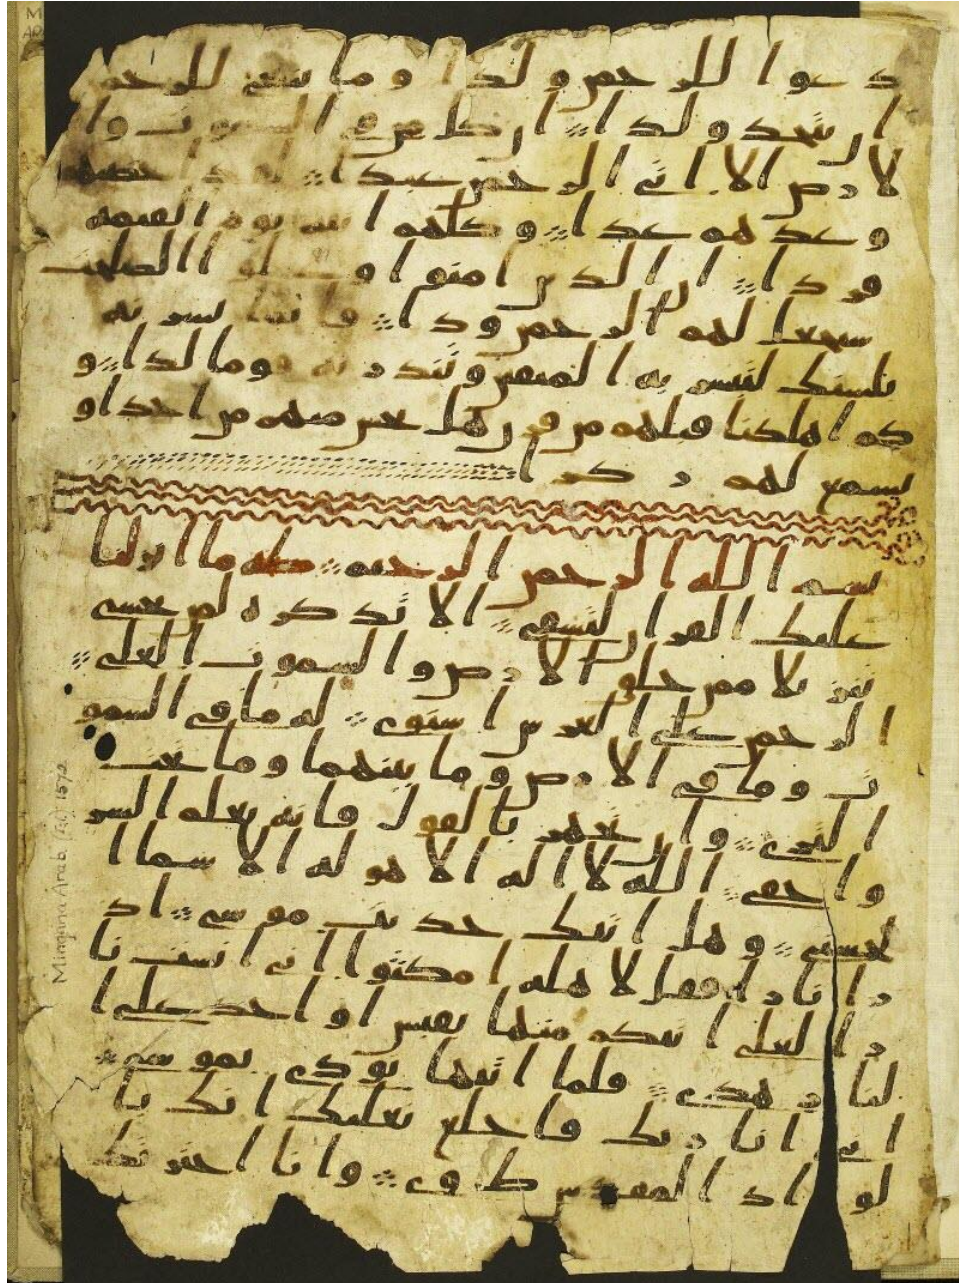 دعوا للرحمن ولدا وما ينبغي للرحمن
ان يتخذ ولدا ان كل من في السموت وا
لارض الا اتي الرحمن عبدا لقد احصيهم
وعدهم عدا وكلهم اتيه يوم القيمة
فردا ان الذين امنوا وعملوا الصلحت
سيجعل لهم الرحمن ودا فانما يسرنه
بلسنك لتبشر به المتقين وتنذر به قوما لدا و
كم اهلكنا قبلهم من قرن هل تحس منهم من احد او
تسمع لهم ركزا
بسم الله الرحمن الرحيم طه ما انزلنا
عليك القران لتشقى الا تذكرة لمن يخشى
تنزيلا ممن خلق الارض والسموت العلى
الرحمن على العرش استوى له ما في السمو
ت وما في الارض وما بينهما وما تحت
الثرى وان تجهر بالقول فانه يعلم السر
واخفى الله لا اله الا هو له الاسما ا
لحسنى وهل اتيك حديث موسى اذ
را نارا فقال لاهله امكثوا اني انست نا
را لعلي اتيكم منها بقبس او اجد على ا
لنار هدى فلما اتيها نودي يموسى
اني انا ربك فاخلع نعليك انك با
لواد المقدس طوى وانا اخترتك
Mingana Arab. (Isl.) 1572